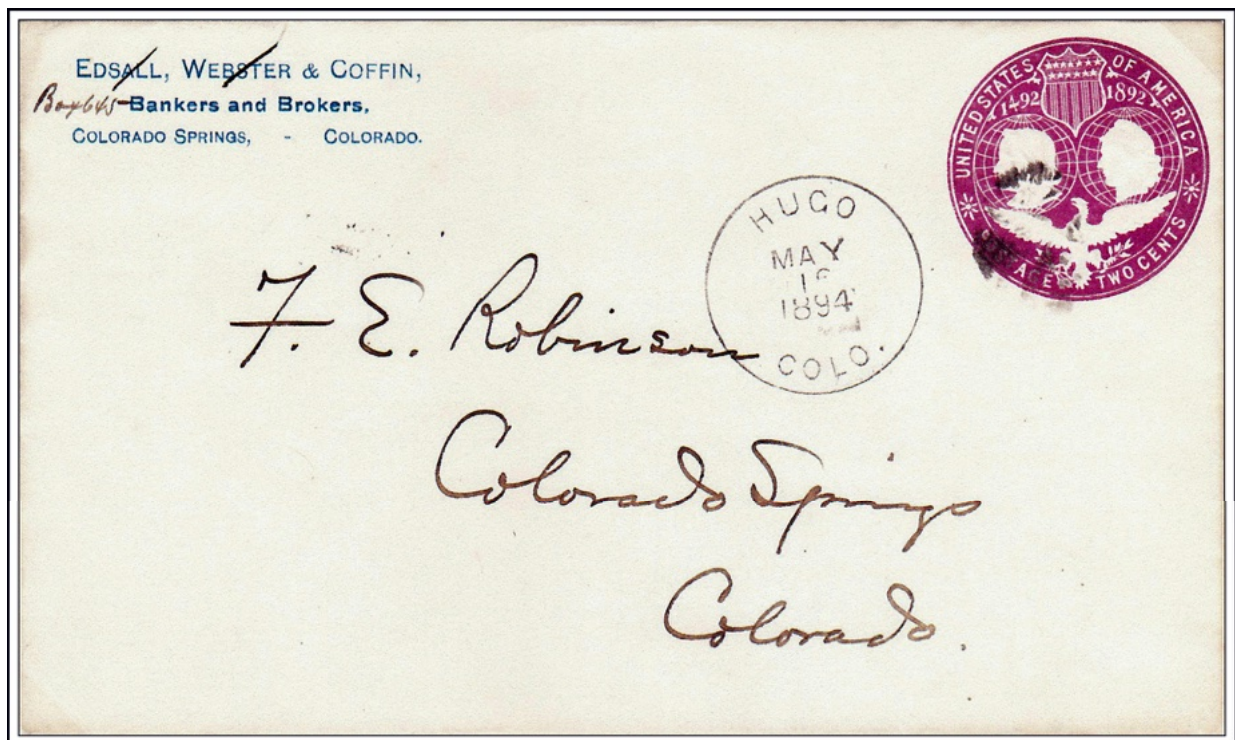 EDSALL, WEBSTER & COFFIN,
Box 645 Bankers and Brokers,
COLORADO SPRINGS, - COLORADO.
UNITED STATES OF AMERICA
1492 1892
POSTAGE TWO CENTS
HUGO
MAY
1894
COLO.
F. E. Robinson
Colorado Springs
Colorado.